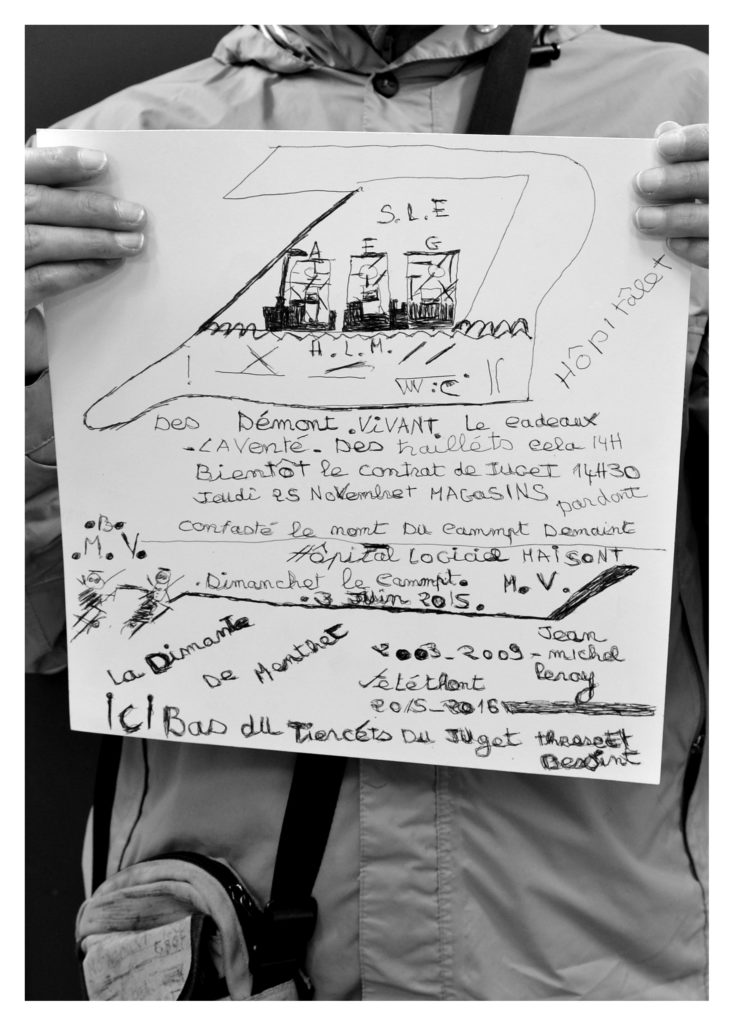 S.L.E
A E G
H.L.M.
W.C.
Hôpitâlet
Des Démont .ViVANT Le cadeaux
.LAVenté. Des trailléts cela 14H
Bientôt le contrat de Juget 14H30
Jeudi 25 Novembret MAGASINS pardont
contasté le nomt Du cammpt Demaint
.B.
.M.V.
Hôpital Logiciel MAISONT
.Dimanchet le cammpt.
M.V.
.3 Juin 2015.
LA Dimante
De Menthet
Jean
2003_2009_michel
Leroy
teléthont
2015_2016
ici Bas du Tiercéts Du Juget
Dessint